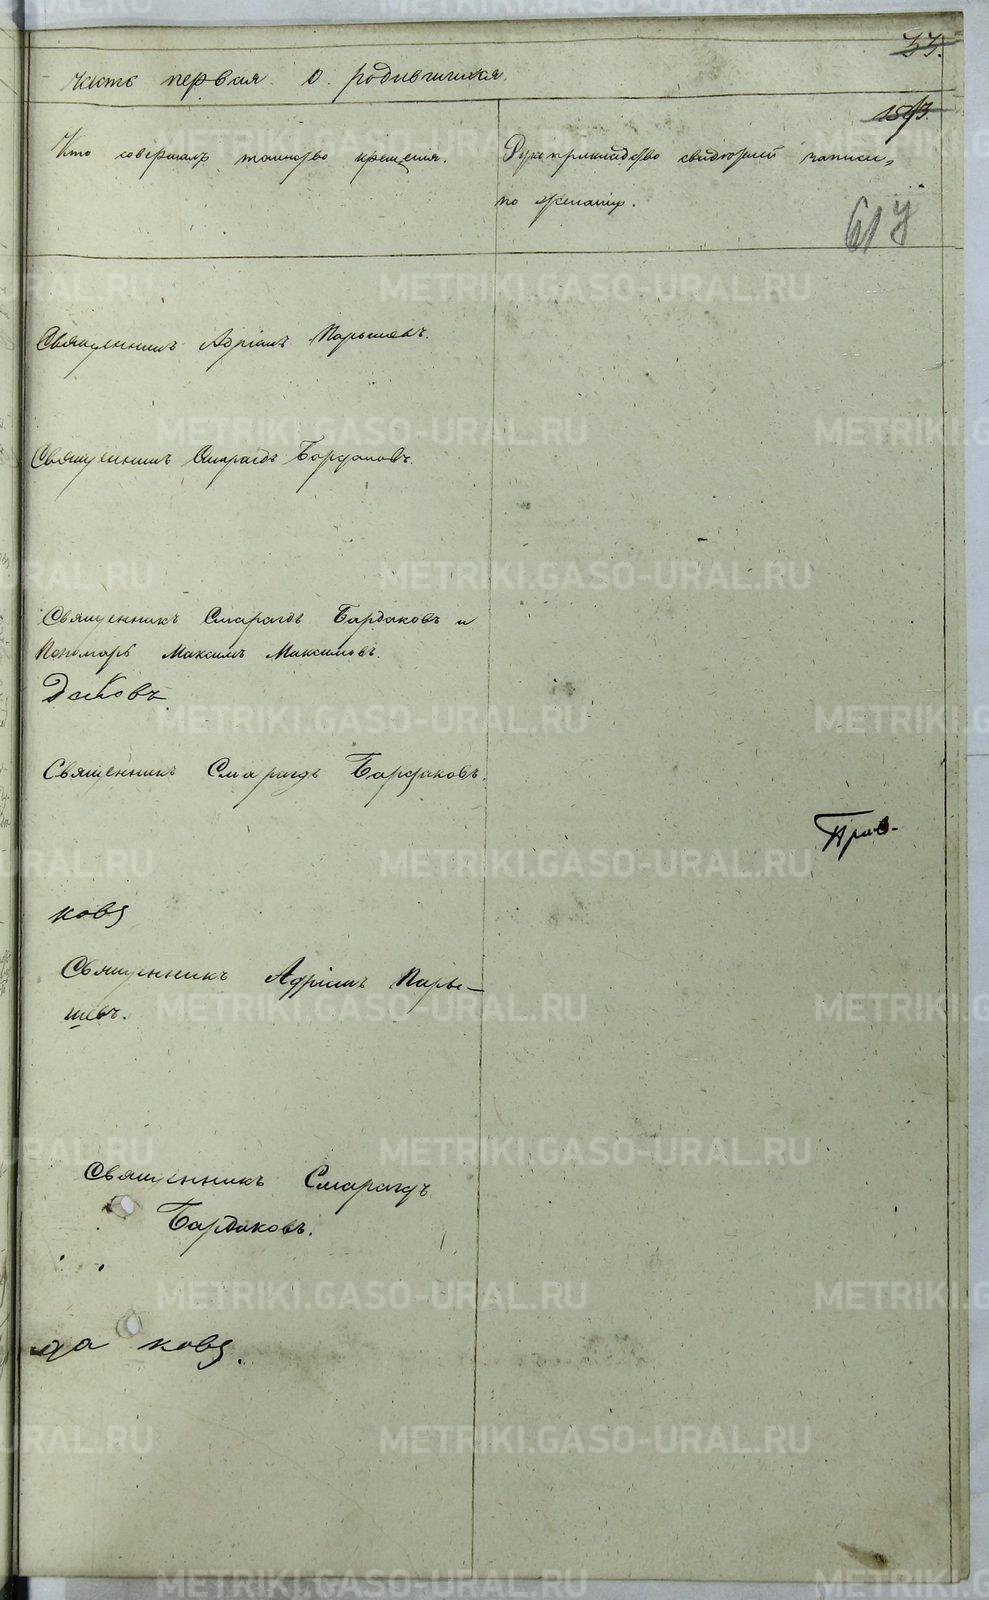 33.
часть первая о родившихся.
1873.
Кто совершалъ таинство крещения.
Рукоприкладство свидѣтелей записи
по желанію.
61
Священникъ Адріанъ Парышевъ.
Священникъ Смарагдъ Бардаковъ.
Священникъ Смарагдъ Бардаковъ и
Пономарь Максимъ Максимовъ.
Священникъ Смарагдъ Бардаковъ.
Прив-
ковъ
Священникъ Адріанъ Пары-
шевъ.
Священникъ Смарагдъ
Бардаковъ.
да ковъ.
METRIKI.GASO-URAL.RU